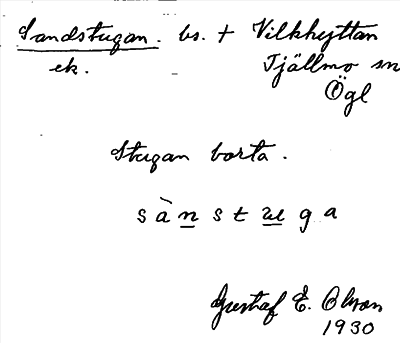 Sandstugan. bs. + Vilkhyttan
ek. Tjällmo sn
Ögl
Stugan borta.
s à n s t u g a
Gustaf E. Olson
1930